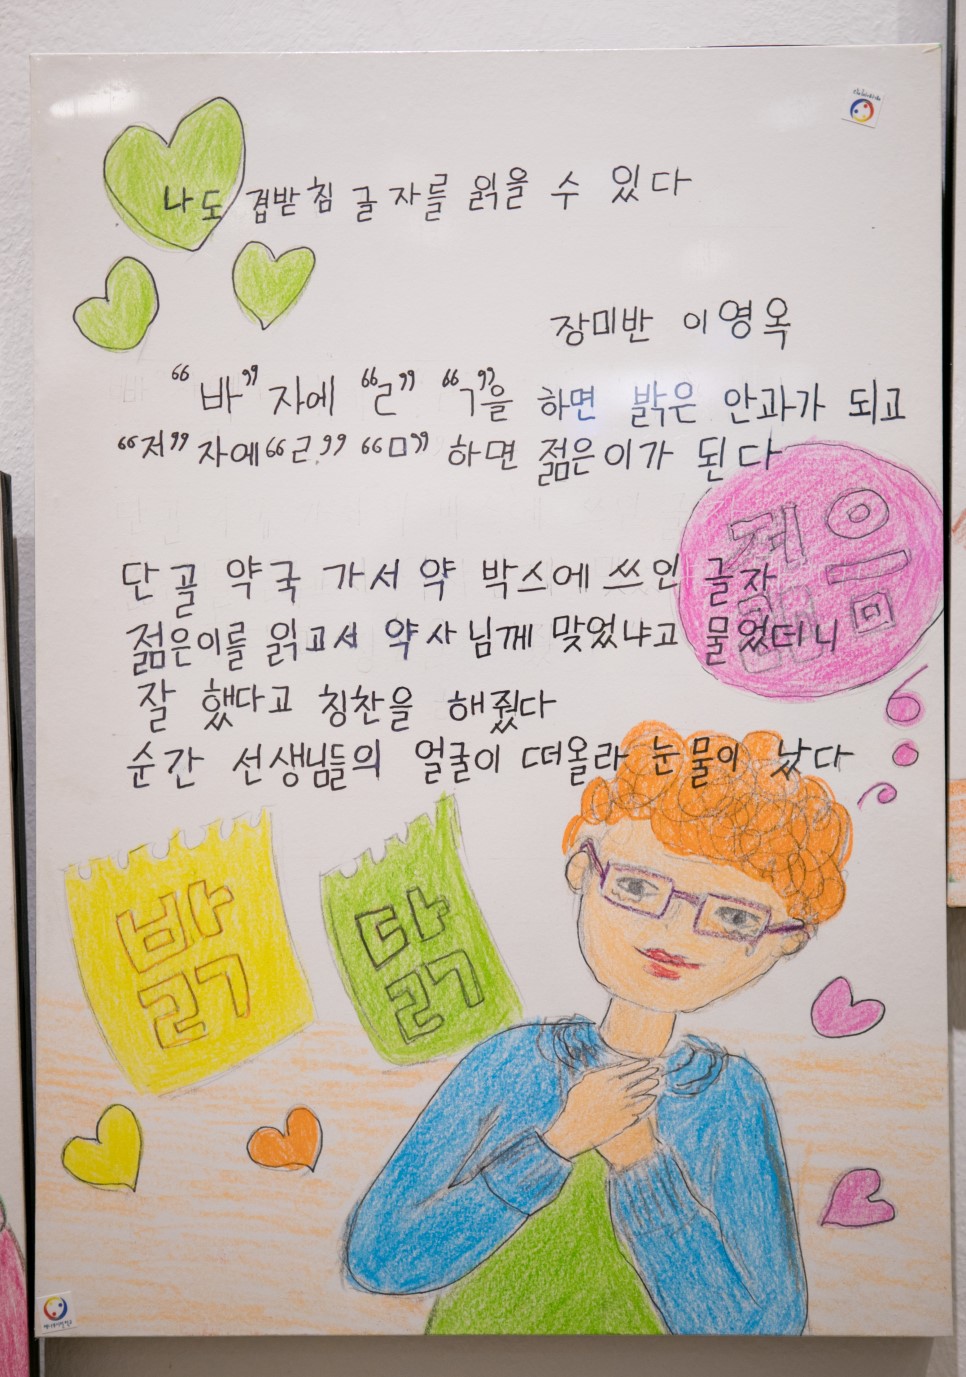 나도 겹받침 글자를 읽을 수 있다
장미반 이영옥
“바” 자에 “ㄹ” “ㄱ”을 하면 밝은 안과가 되고
“저” 자에 “ㄹ” “ㅁ” 하면 젊은이가 된다
단골 약국 가서 약 박스에 쓰인 글자
젊은이를 읽고서 약사님께 맞었냐고 물었더니
잘 했다고 칭찬을 해줬다
순간 선생님들의 얼굴이 떠올라 눈물이 났다
밝
닭